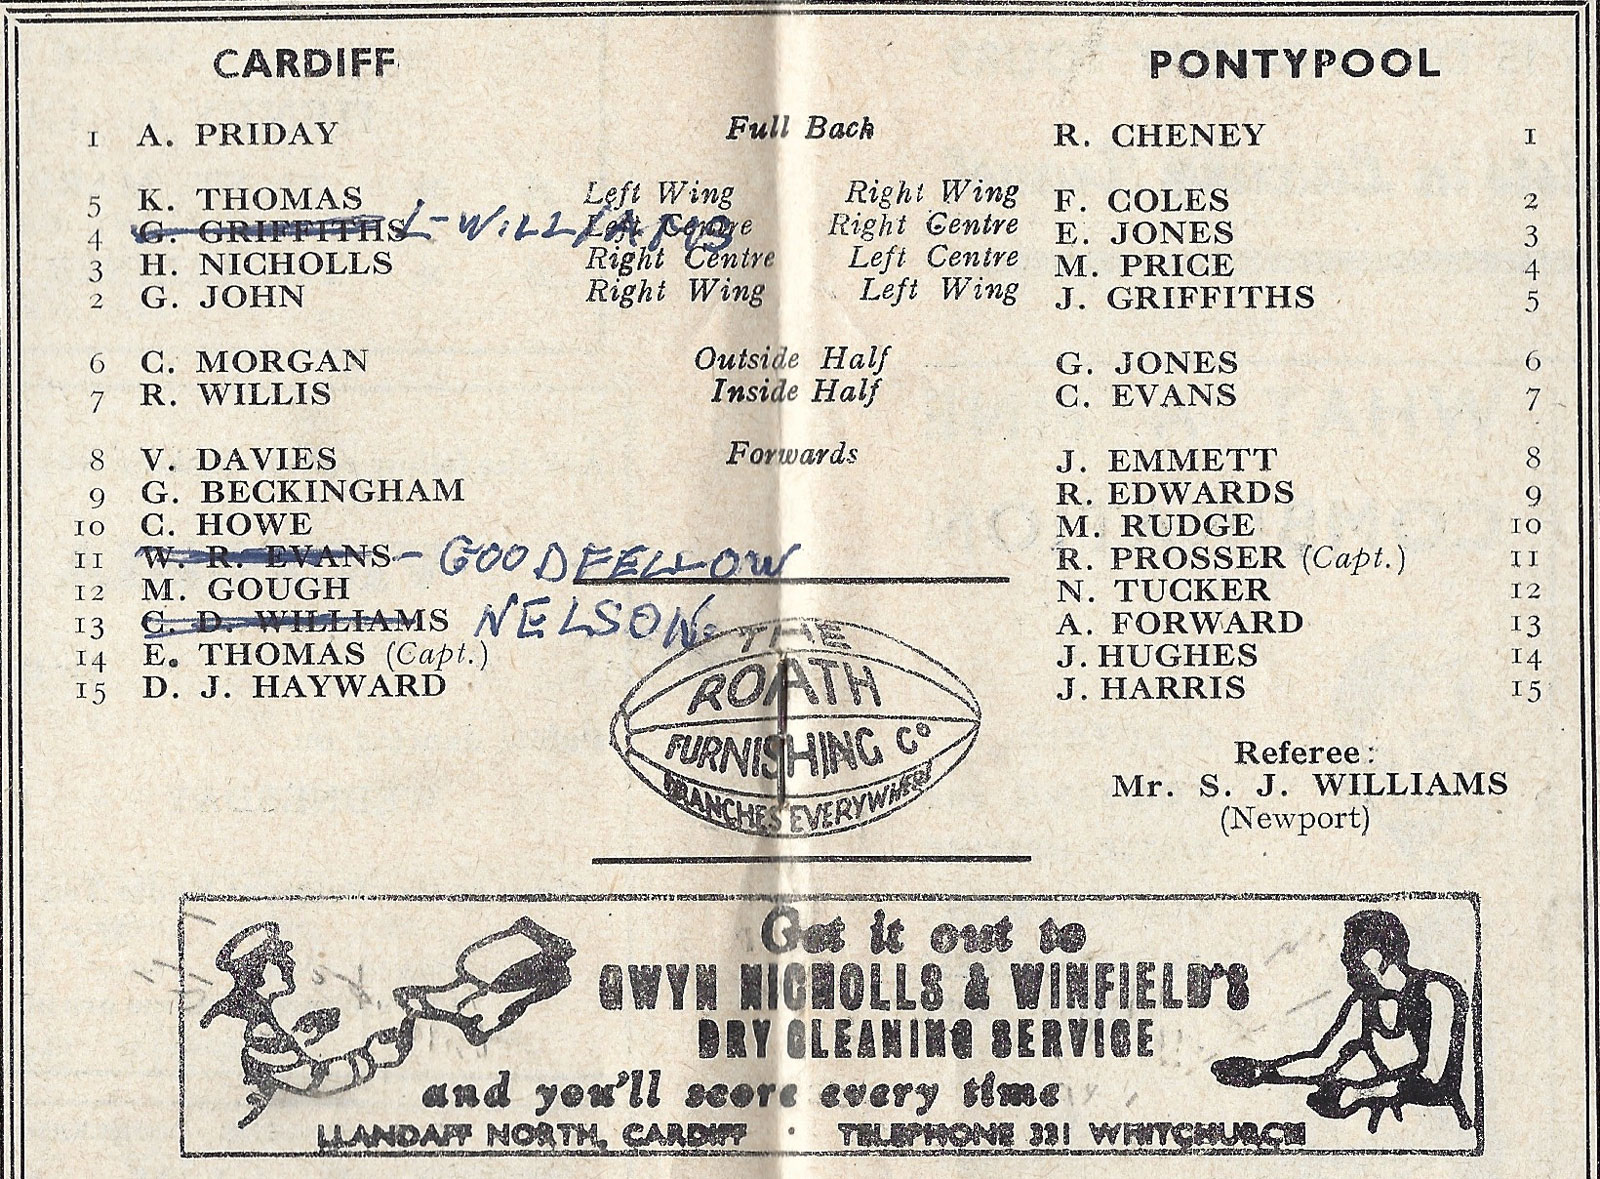 CARDIFF PONTYPOOL
1 A. PRIDAY Full Back R. CHENEY 1
5 K. THOMAS Left Wing Right Wing F. COLES 2
4 G. GRIFFITHS L-WILLIAMS Left Centre Right Centre E. JONES 3
3 H. NICHOLLS Right Centre Left Centre M. PRICE 4
2 G. JOHN Right Wing Left Wing J. GRIFFITHS 5
6 C. MORGAN Outside Half G. JONES 6
7 R. WILLIS Inside Half C. EVANS 7
8 V. DAVIES Forwards J. EMMETT 8
9 G. BECKINGHAM R. EDWARDS 9
10 C. HOWE M. RUDGE 10
11 W. R. EVANS - GOODFELLOW R. PROSSER (Capt.) 11
12 M. GOUGH N. TUCKER 12
13 C. D. WILLIAMS NELSON. A. FORWARD 13
14 E. THOMAS (Capt.) J. HUGHES 14
15 D. J. HAYWARD J. HARRIS 15
THE
ROATH
FURNISHING Co
BRANCHES EVERYWHERE
Referee:
Mr. S. J. WILLIAMS
(Newport)
Get it out to
GWYN NICHOLLS & WINFIELD'S
DRY CLEANING SERVICE
and you'll score every time
LLANDAFF NORTH, CARDIFF · TELEPHONE 331 WHITCHURCH